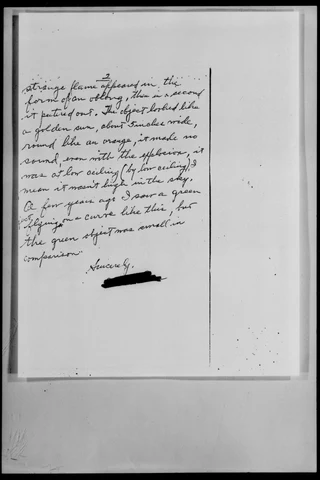 2
strange flame appeared in the
form of an oblong, then in a second
it petired out. The object looked like
a golden sun, about 5 inches wide,
round like an orange, it made no
sound, even with the explosion, it
was at low ceiling (by low ceiling) I
mean it wasn't high in the sky.
A few years ago I saw a green
flying on a curve like this, but
the green object was small in
comparison.
Sincerely,